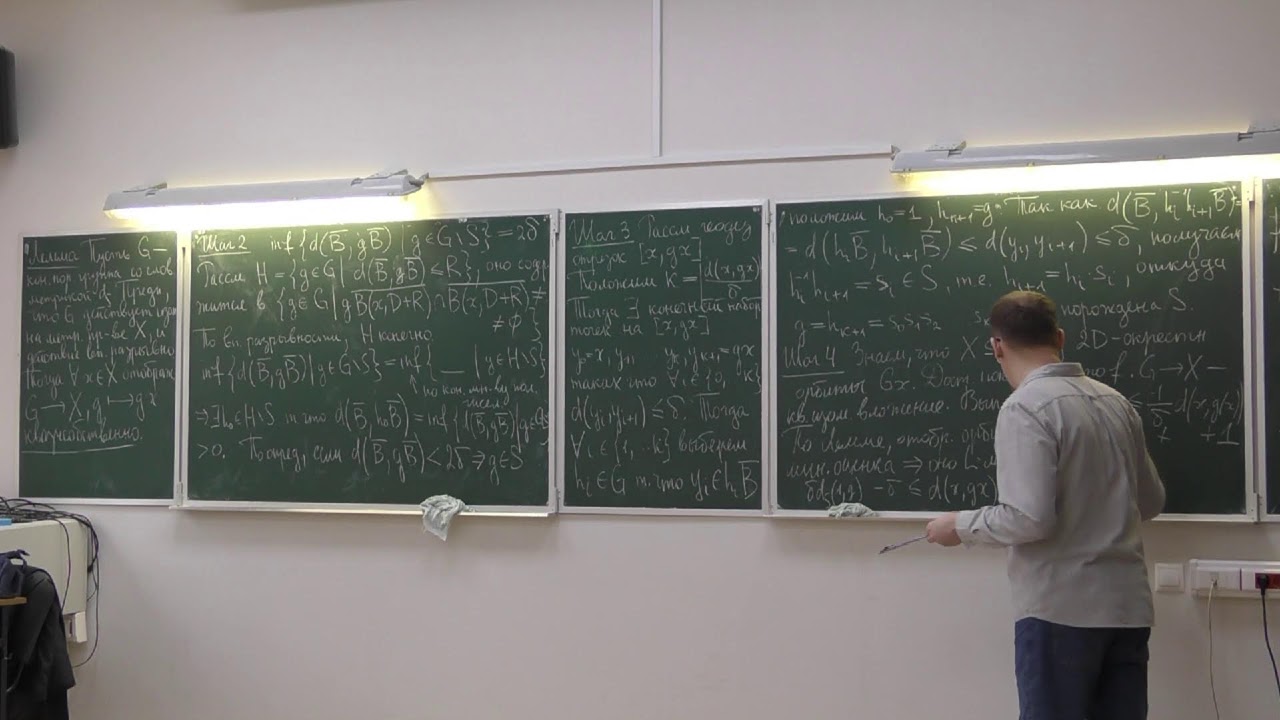 Лемма Пусть G —
кон. пор группа со слов.
метрикой d_S Предп,
что G действует изом
на метр. пр-ве X, и
действие вп. разрывно
Тогда ∀ x∈X отображ
G → X, g ↦ gx
квазилипшицево.
Шаг 2 inf {d(B̅, gB̅) | g∈G\S} = 2δ
Рассм H = {g∈G | d(B̅, gB̅) ≤ R}, оно содер
жится в {g∈G | gB̅(x, D+R) ∩ B̅(x, D+R) ≠
≠ ∅}
По вп. разрывности, H конечно.
inf {d(B̅, gB̅) | g∈G\S} = inf { __ | g∈H\S}
по кон. мн-ву пол.
чисел
⇒ ∃ h₀∈H\S т что d(B̅, h₀B̅) = inf {d(B̅, gB̅) | g∈G\S}
> 0. По опред, если d(B̅, gB̅) < 2δ ⇒ g∈S
Шаг 3 Рассм геодез
отрезок [x, gx]
Положим K = [d(x, gx)/δ]
Тогда ∃ конечный набор
точек на [x, gx]
y₀ = x, y₁, y_K, y_{K+1} = gx
таких что ∀ i∈{0, K}
d(y_i, y_{i+1}) ≤ δ. Тогда
∀ i∈{1, .. k} выберем
h_i ∈ G т. что y_i ∈ h_i B̅
положим h₀ = 1, h_{K+1} = g. Так как d(B̅, h_i⁻¹h_{i+1}B̅) =
= d(h_i B̅, h_{i+1} B̅) ≤ d(y_i, y_{i+1}) ≤ δ, получаем
h_i⁻¹ h_{i+1} = s_i ∈ S, т.е. h_{i+1} = h_i s_i, откуда
g = h_{K+1} = s₀ s₁ s₂ порождена S.
Шаг 4 Знаем, что X 2D-окрестн
орбиты Gx. G → X —
квизом вложение. ≤ 1/δ d(x, g(x)) +
+ 1
По Лемме, отобр. орби
мин. оценка ⇒ оно
δd_S(1, g) − δ ≤ d(x, gx)